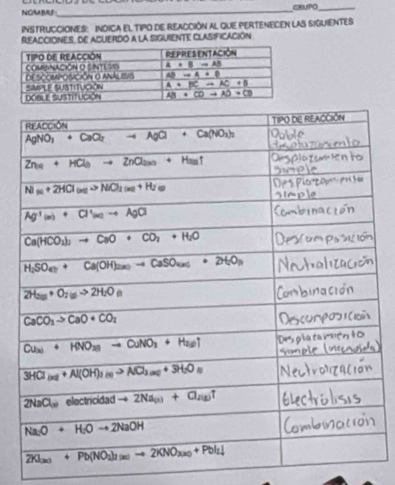 NOMBRE: GRUPO
INSTRUCCIONES: INDICA EL TIPO DE REACCIÓN AL QUE PERTENECEN LAS SIGUIENTES
REACCIONES, DE ACUERDO A LA SIGUIENTE CLASIFICACIÓN
TIPO DE REACCIÓN REPRESENTACIÓN
COMBINACIÓN O SÍNTESIS A + B → AB
DESCOMPOSICIÓN O ANÁLISIS AB → A + B
SIMPLE SUSTITUCIÓN A + BC → AC + B
DOBLE SUSTITUCIÓN AB + CD → AD + CB
REACCIÓN TIPO DE REACCIÓN
AgNO₃ + CaCl₂ → AgCl + Ca(NO₃)₂ Doble
Zn(s) + HCl → ZnCl₂ + H₂↑ Desplazamiento simple
Ni (s) + 2HCl (ac) -> NiCl₂ (ac) + H₂ (g) Desplazamiento simple
Ag⁺¹ (ac) + Cl⁻¹(ac) → AgCl Combinación
Ca(HCO₃)₂ → CaO + CO₂ + H₂O Descomposición
H₂SO₄ + Ca(OH)₂ → CaSO₄ + 2H₂O Neutralización
2H₂(g) + O₂ (g) -> 2H₂O (l) Combinación
CaCO₃ -> CaO + CO₂ Descomposición
Cu(s) + HNO₃ → CuNO₃ + H₂(g)↑ Desplazamiento simple
3HCl (ac) + Al(OH)₃ (s) → AlCl₃ (ac) + 3H₂O (l) Neutralización
2NaCl electricidad → 2Na(s) + Cl₂(g)↑ Electrólisis
Na₂O + H₂O → 2NaOH Combinación
2KI(ac) + Pb(NO₃)₂ (ac) → 2KNO₃(ac) + PbI₂↓